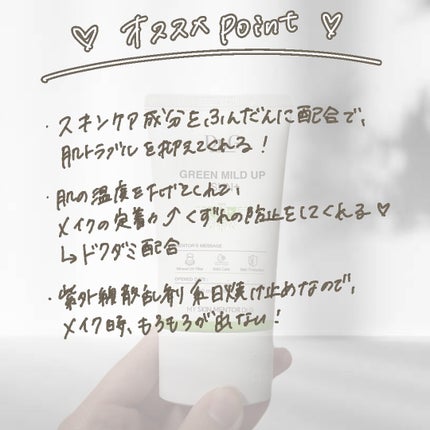 ♡ オススメ point ♡
・スキンケア成分をふんだんに配合で、
肌トラブルを抑えてくれる！
GREEN MILD UP
・肌の温度を下げてくれて、
メイクの定着力↑くずれの防止をしてくれる♡
↳ドクダミ配合
・紫外線散乱剤 日焼け止めなので、
メイク時、もろもろが出ない！
MY SKIN MENTOR Dr.G